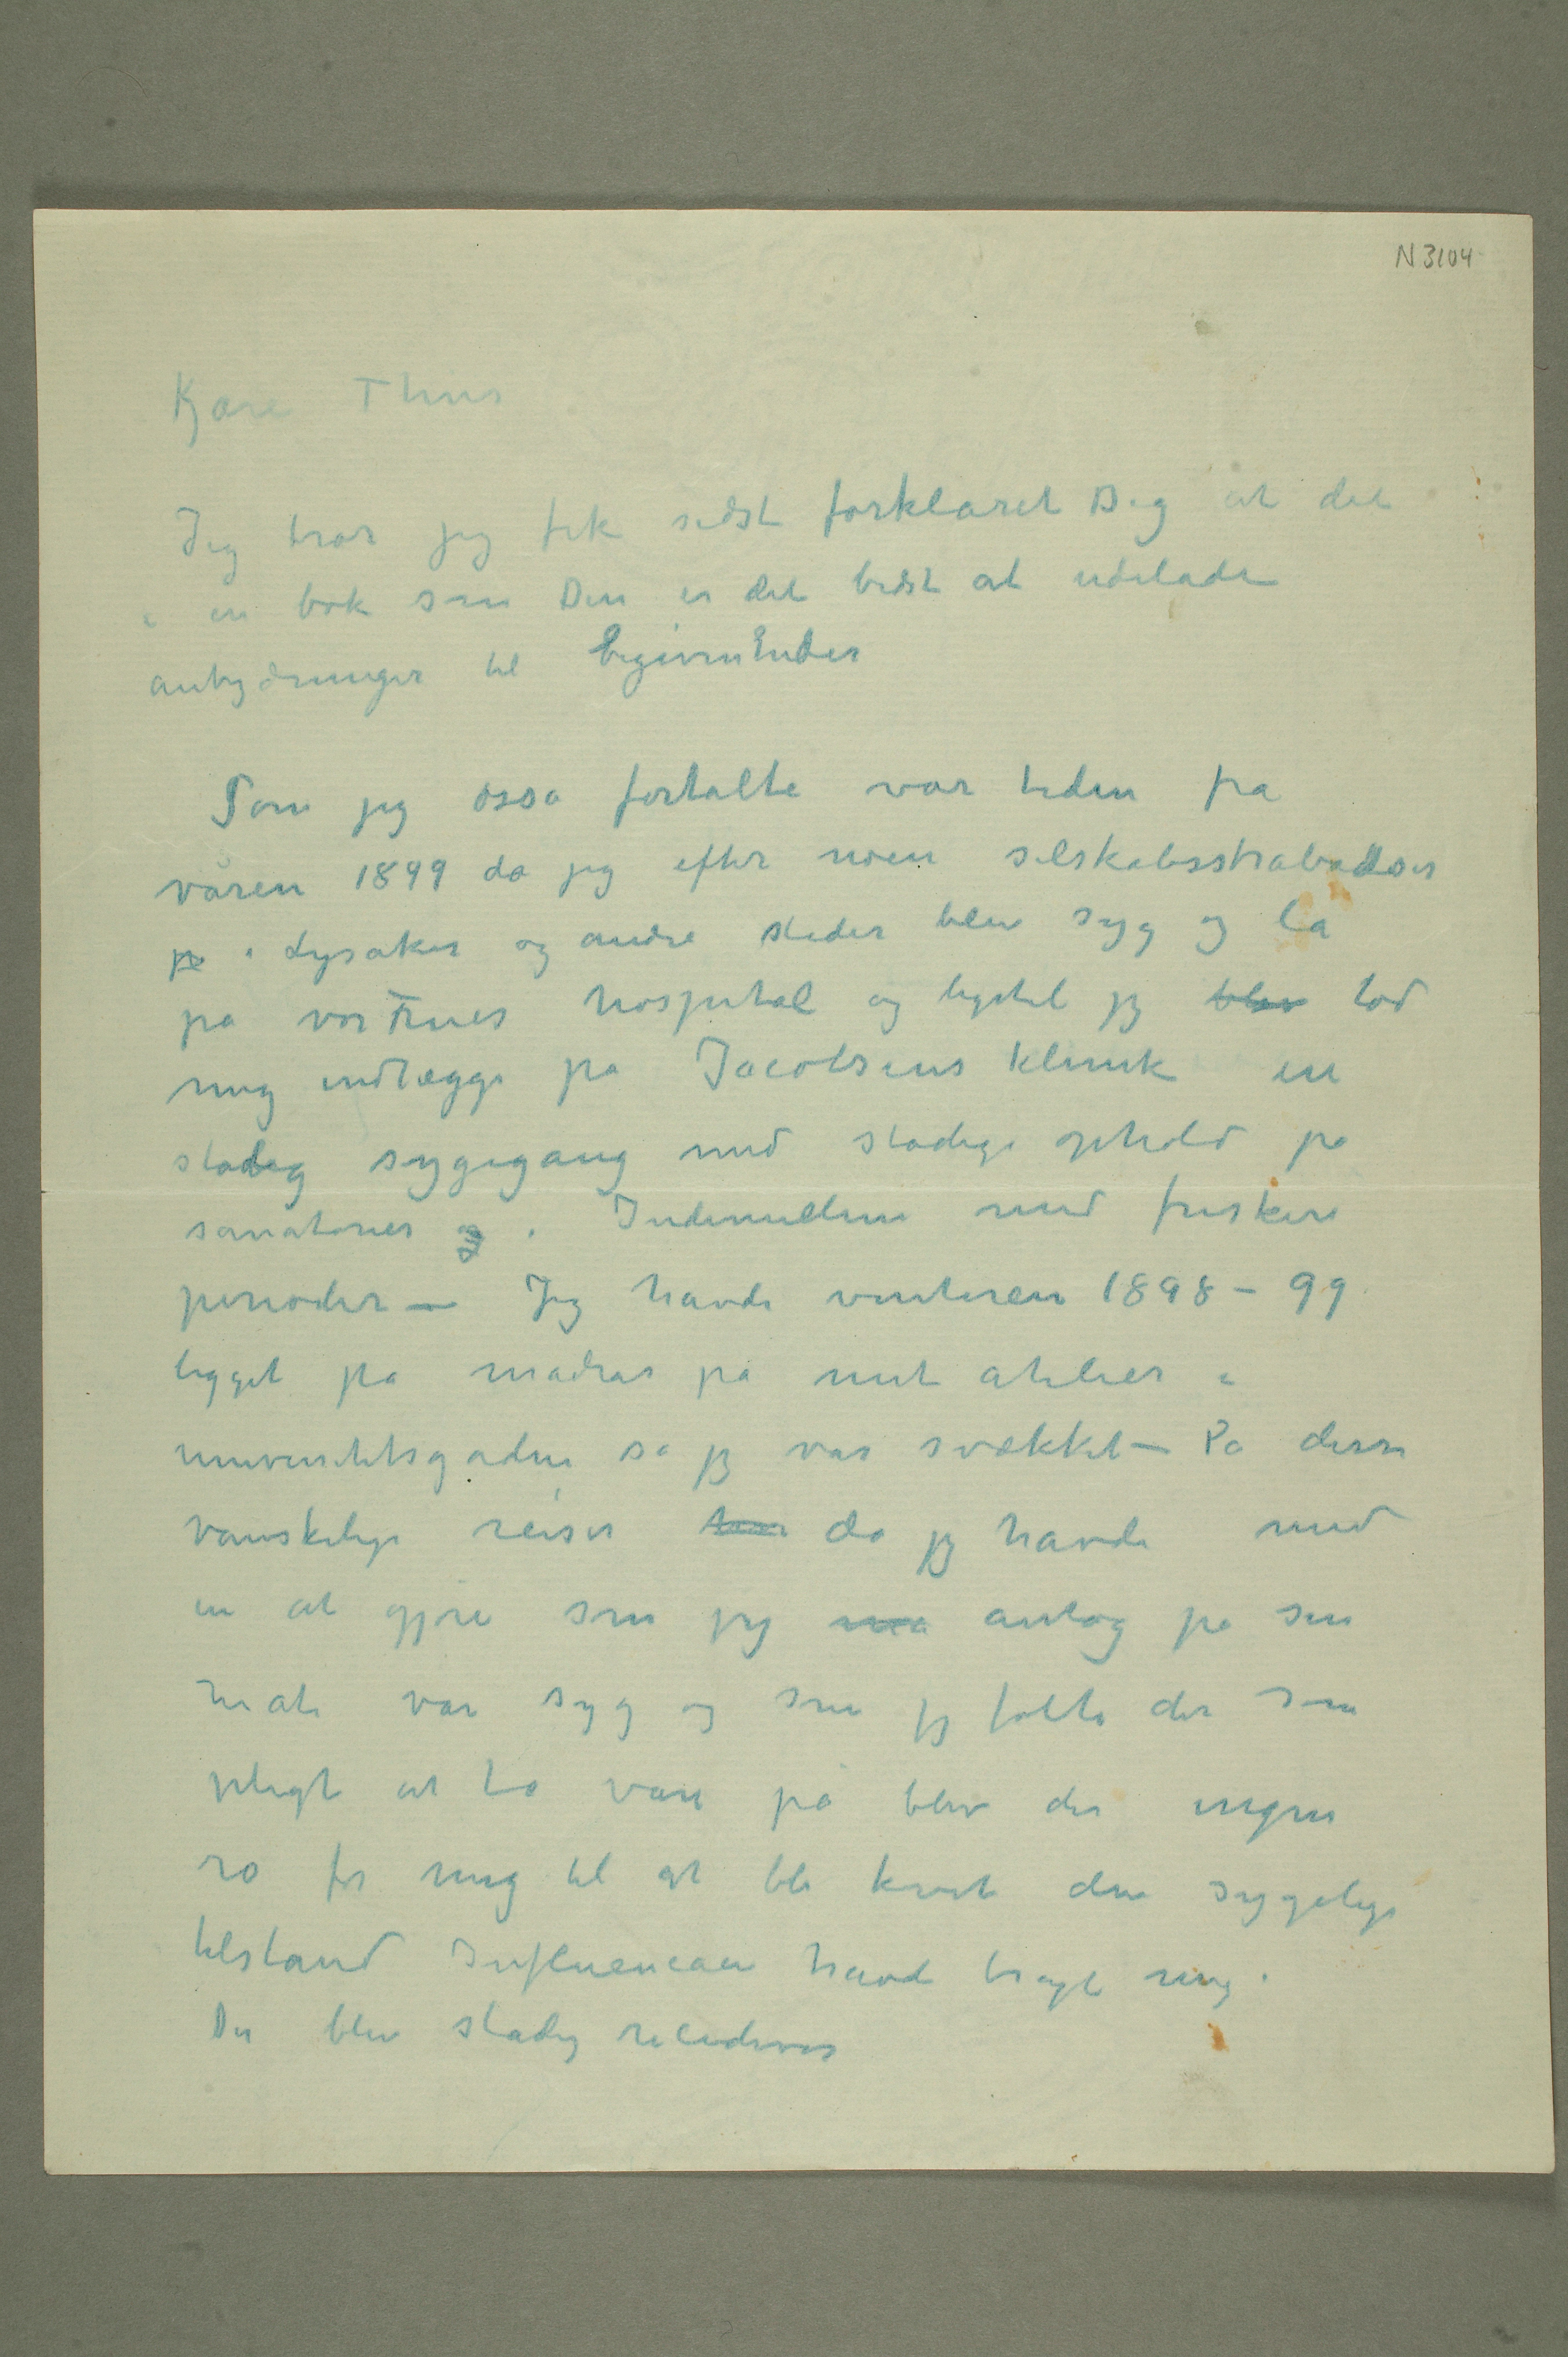 N 3104
Kjære Thiis
Jeg tror jeg fik sidst forklaret Dig at det
i en bok som Din er det bedst at udelade
antydninger til begivenheder
Som jeg osså fortalte var tiden fra
våren 1899 da jeg efter noen selskabsstrabadser
på i Lysaker og andre steder blev syg og lå
på vor Frues hospital og ligetil jeg blev lod
mig indlægge på Jacobsens klinik en
stadig sygegang med stadige ophold på
sanatorier og . Indimellem med friskere
perioder — Jeg havde vinteren 1898 – 99
ligget på madras på mit atelier i
universitetsgaden så jeg var svækket – På disse
vanskelige reiser da jeg havde med
en at gjøre som jeg antog på sin
måte var syg og som jeg følte det som
pligt at ta vare på blev der ingen
ro for mig til at bli kvit den sygelige
tilstand Influencaen havde bragt mig.
Der blev stadig recidiver